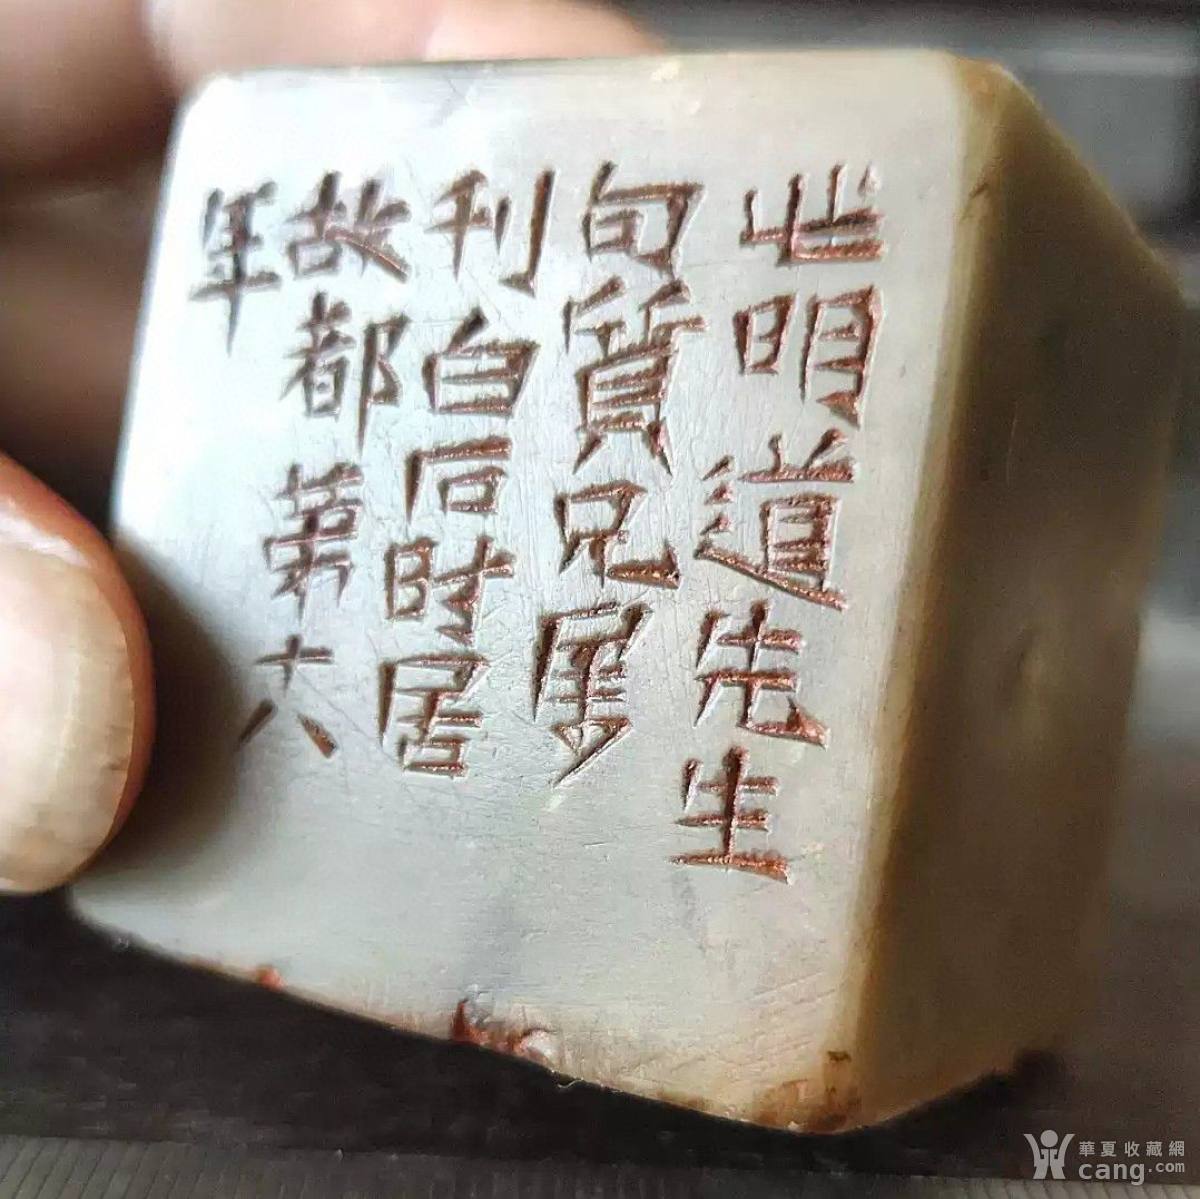 此明道先生
句質兄屬
刊白石时居
故都第六
年
華夏收藏網
cang.com